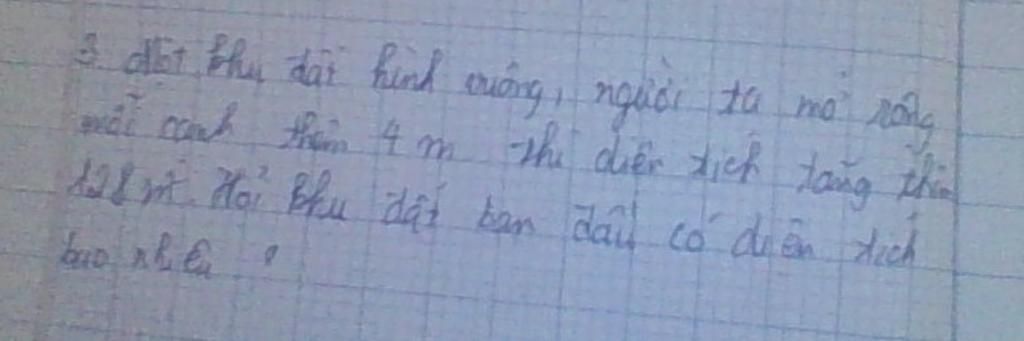 3. Một khu đất hình vuông, người ta mở rộng
mỗi cạnh thêm 4 m thì diện tích tăng thêm
128 m². Hỏi khu đất ban đầu có diện tích
bao nhiêu ?